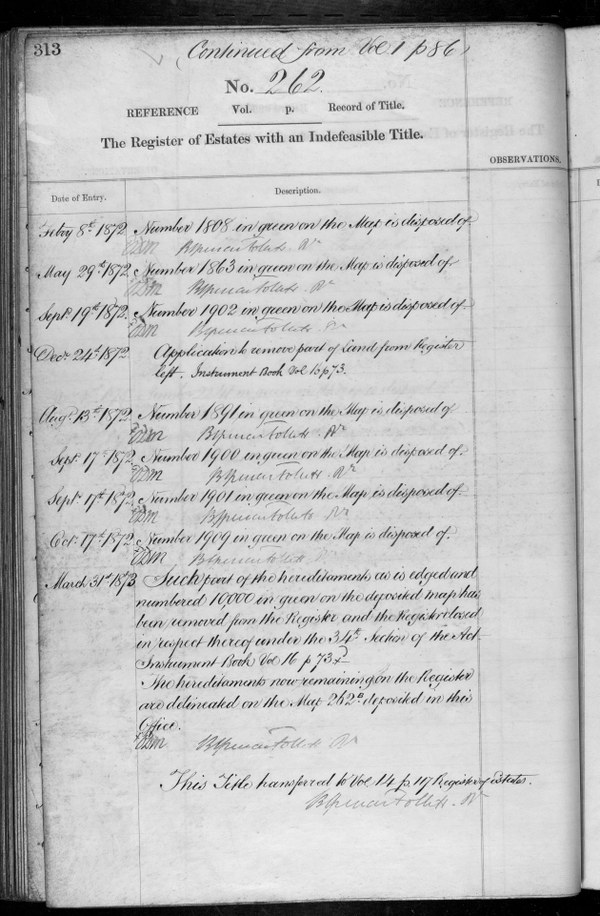 313
(Continued from Vol 1 p 86)
No. 262.
REFERENCE Vol. p. Record of Title.
The Register of Estates with an Indefeasible Title.
OBSERVATIONS.
Date of Entry. Description.
Feby 8th 1872 Number 1808 in green on the Map is disposed of
May 29th 1872 Number 1863 in green on the Map is disposed of
Septr 19th 1872 Number 1902 in green on the Map is disposed of
Decr 24th 1872 Application to remove part of Land from Register
left. Instrument Book Vol 15 p 73.
Augt 13th 1872 Number 1891 in green on the Map is disposed of
Septr 17th 1872 Number 1900 in green on the Map is disposed of
Septr 17th 1872 Number 1901 in green on the Map is disposed of
Oct. 17th 1872 Number 1909 in green on the Map is disposed of.
March 31st 1873 Such part of the hereditaments as is edged and
numbered 10,000 in green on the deposited map has
been removed from the Register and the Register closed
in respect thereof under the 34th Section of the Act
Instrument Book Vol 16 p 73
The hereditaments now remaining on the Register
are delineated on the Map 262B deposited in this
Office.
This Title transferred to Vol 14 p 117 Register of Estates.